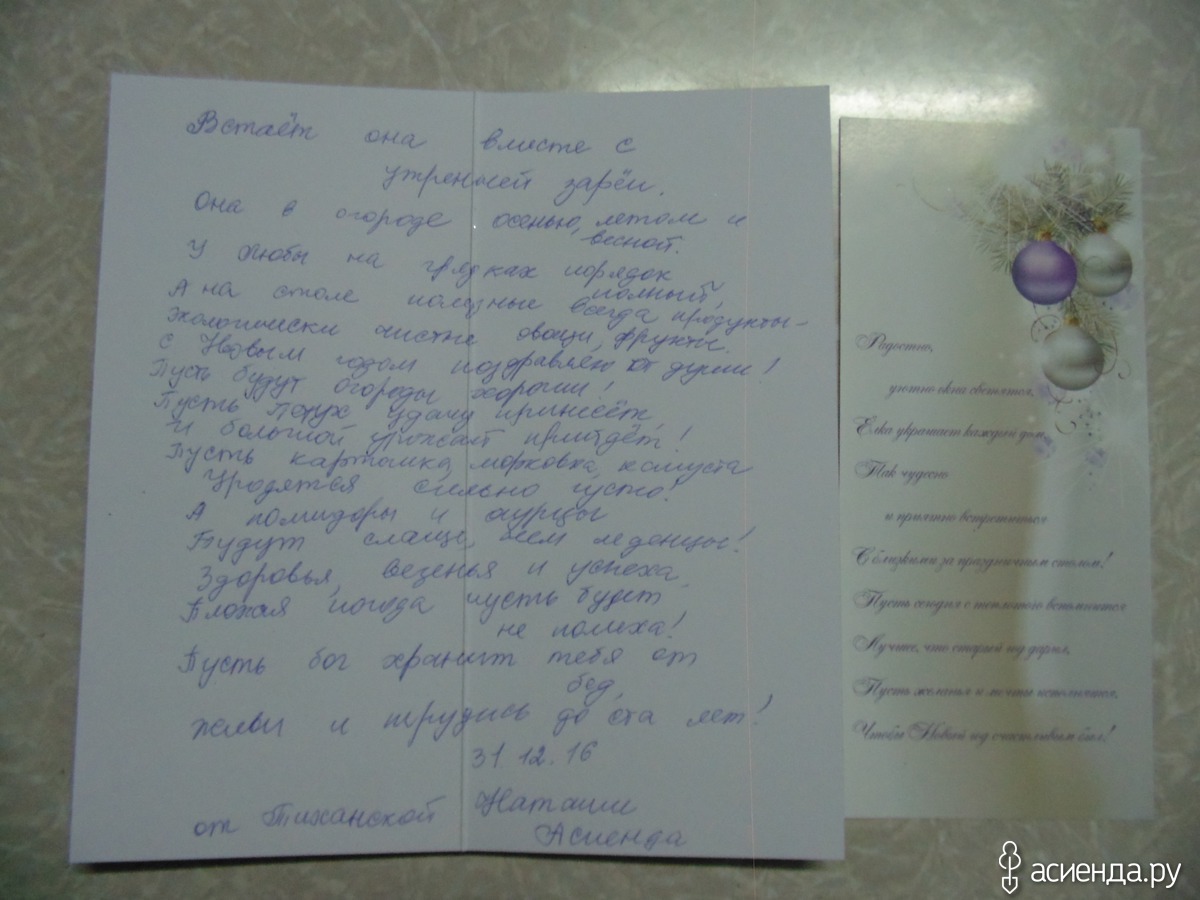 Встаёт она вместе с
утренней зарёй.
Она в огороде осенью, летом и
весной.
У Любы на грядках порядок
полный,
А на столе полезные всегда продукты –
экологически чистые овощи, фрукты.
С Новым годом поздравляю от души!
Пусть будут огороды хороши!
Пусть Петух удачу принесёт,
И большой урожай придёт!
Пусть картошка, морковка, капуста
Уродятся сильно густо!
А помидоры и огурцы
Будут слаще, чем леденцы!
Здоровья, везенья и успеха,
Плохая погода пусть будет
не помеха!
Пусть бог хранит тебя от
бед,
Живи и трудись до ста лет!
31.12.16
от Тиханской Наташи
Асиенда
Радостно,
уютно окна светятся,
Ёлка украшает каждый дом,
Так чудесно
и приятно встретиться
С близкими за праздничным столом!
Пусть сегодня с теплотою вспомнится
Лучшее, что старый год дарил,
Пусть желанья и мечты исполнятся,
Чтобы Новый год счастливым был!
асиенда.ру